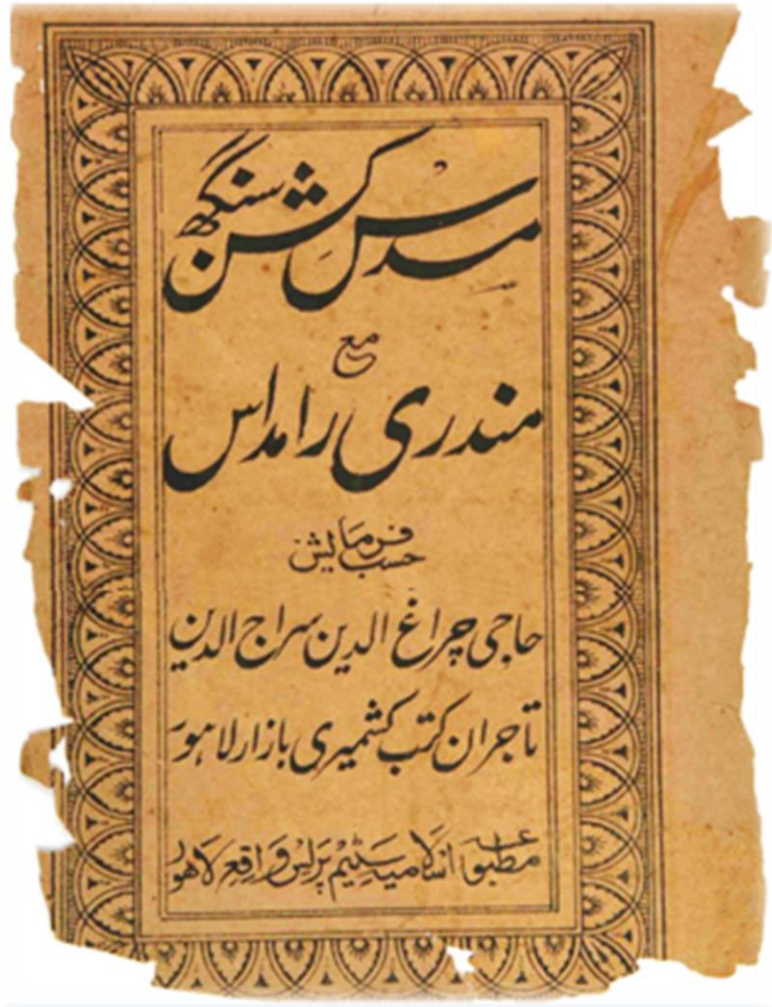 مسدس کشن سنگھ
مع
مندری رامداس
حسب فرمایش
حاجی چراغ الدین سراج الدین
تاجران کتب کشمیری بازار لاہور
مطبوعہ اسلامیہ سٹیم پریس واقع لاھور